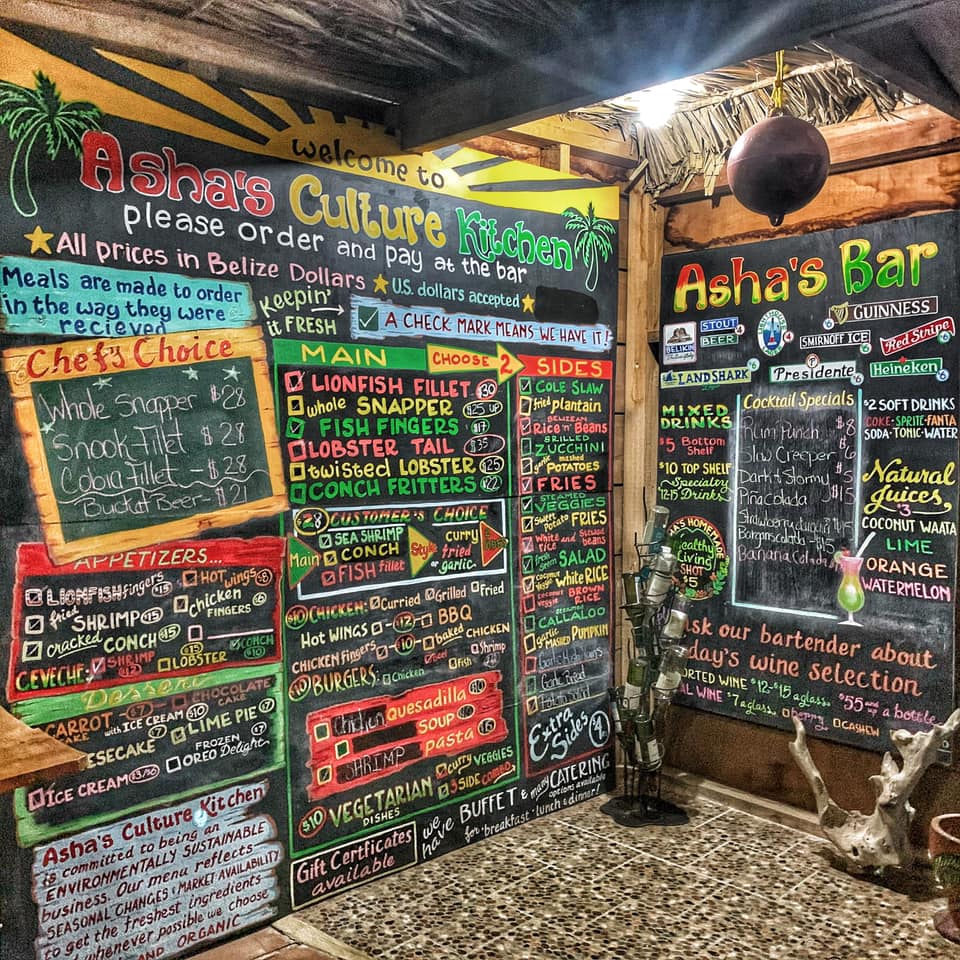 welcome to
Asha's Culture Kitchen
please order and pay at the bar
All prices in Belize Dollars
U.S. dollars accepted
Meals are made to order
in the way they were
recieved
Keepin'
it FRESH
A CHECK MARK MEANS WE HAVE IT!
Chef's Choice
Whole Snapper $28
Snook-Fillet $28
Cobia-Fillet - $28
Bucket Beer - $21
APPETIZERS...
LIONFISH fingers $15
fried SHRIMP $15
cracked CONCH $15
HOT wings $8
chicken FINGERS $6
CEVECHE: SHRIMP $12
LOBSTER $15
CONCH $10
Dessert
CARROT $7
with ICE CREAM $10
CHOCOLATE CAKE
ESECAKE $7
LIME PIE $7
ICE CREAM $3/$10
FROZEN OREO Delight $7
Asha's Culture Kitchen
is committed to being an
ENVIRONMENTALLY SUSTAINABLE
business. Our menu reflects
SEASONAL CHANGES & MARKET AVAILABILITY
to get the freshest ingredients
whenever possible we choose
AND ORGANIC
MAIN
CHOOSE 2
LIONFISH FILLET $30
whole SNAPPER $25 UP
FISH FINGERS $17
LOBSTER TAIL $35
twisted LOBSTER $25
CONCH FRITTERS $22
$28 CUSTOMER'S CHOICE
Main
SEA SHRIMP
CONCH
FISH fillet
Style
curry
fried
garlic
$10 CHICKEN: Curried Grilled Fried
HOT WINGS - $12 - BBQ
CHICKEN fingers - $10 - baked CHICKEN
$10 BURGERS: Chicken Beef Fish Shrimp
Chicken quesadilla $10
SOUP $10
SHRIMP pasta $15
$10 VEGETARIAN DISHES
curry VEGGIES
3 SIDE COMBO
Gift Certficates
available
we have BUFFET & many CATERING
options available
for breakfast lunch & dinner!
SIDES
COLE SLAW
fried plantain
BELIZEAN
Rice 'n' Beans
GRILLED
ZUCCHINI
garlic mashed
POTATOES
FRIES
STEAMED
VEGGIES
Sweet Potato FRIES
White Rice and Stewed beans
fresh Seasn SALAD
coconut veggie white RICE
coconut veggie BROWN RICE
STEAMED
CALLALOO
garlic MASHED PUMPKIN
Garlic Bread
Potato Salad
Extra
Sides $4
Asha's Bar
BELIKIN
STOUT 4
BEER 4
GUINNESS 6
SMIRNOFF ICE
Red Stripe
LANDSHARK
Presidente 6
Heineken 6
MIXED
DRINKS
$5 Bottom
Shelf
$10 TOP SHELF
Specialty
12-15 Drinks
Cocktail Specials
Rum Punch $8
Slow Creeper
Dark n Stormy
Pina Colada $15
Banana Colada
$2 SOFT DRINKS
COKE·SPRITE·FANTA
SODA·TONIC·WATER
Natural
Juices
$3
COCONUT WAATA
LIME
ORANGE
WATERMELON
A'S HOMEMADE
Healthy
Living
SHOT
$5
sk our bartender about
day's wine selection
ORTED WINE $12-$15 a glass $55 and up a bottle
AL WINE $7 a glass Berry CASHEW